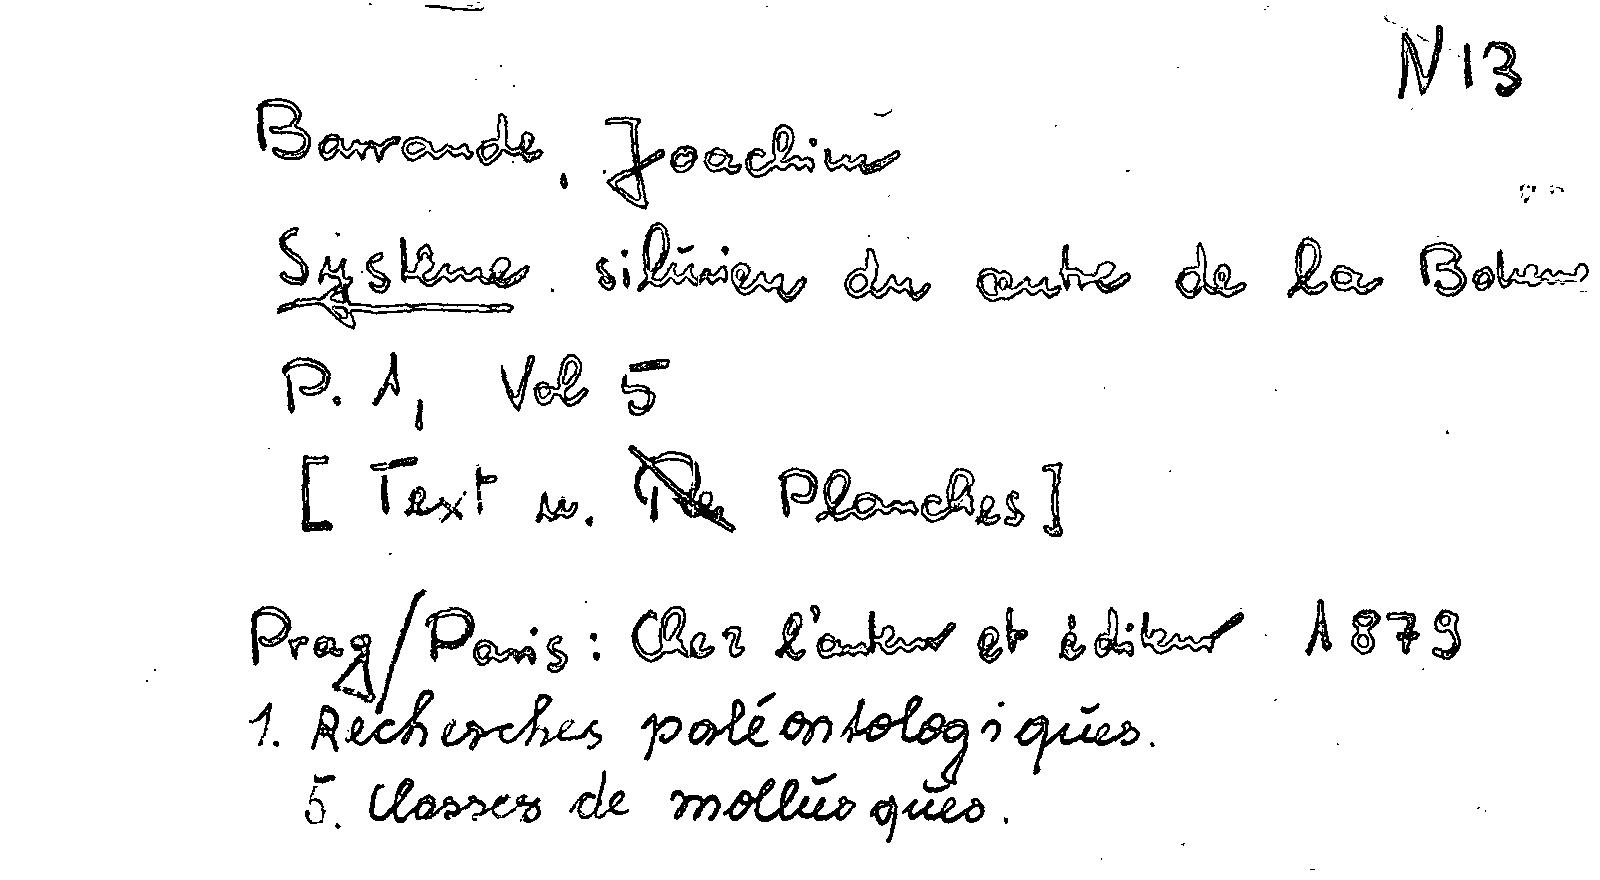 N 13
Barrande, Joachim
Système silurien du centre de la Boheme
P. 1, Vol 5
[Text u. Planches]
Prag/Paris: Chez l'auteur et éditeur 1879
1. Recherches paléontologiques.
5. Classes de mollusques.